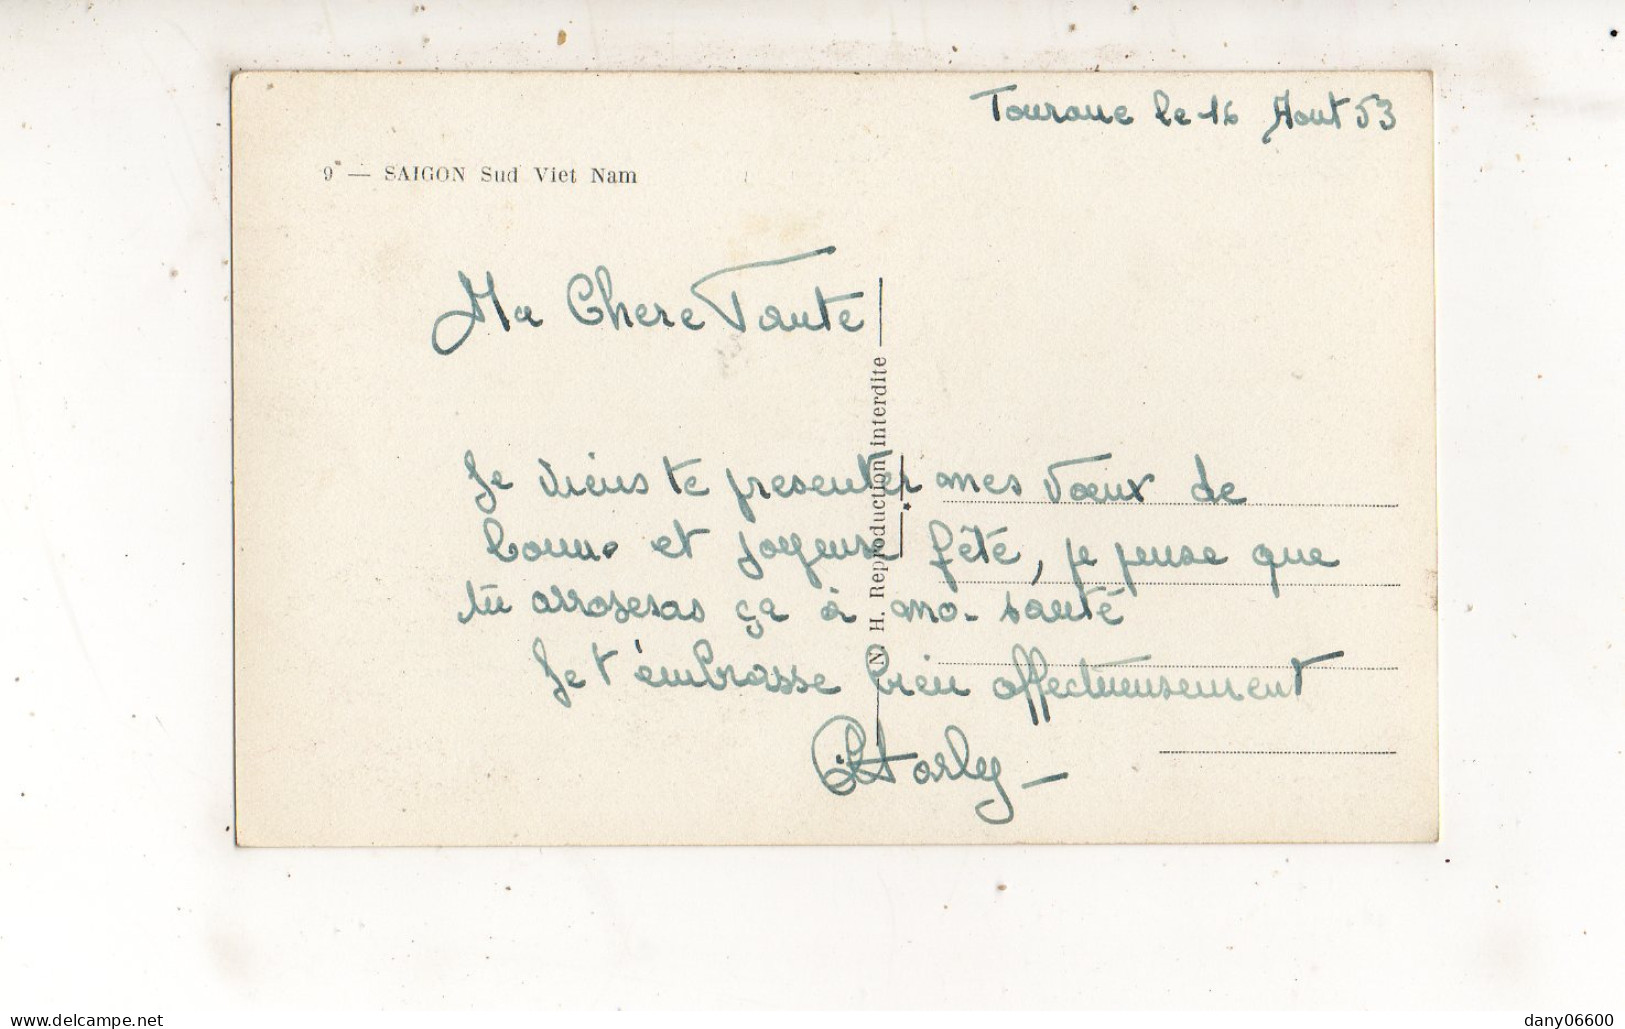 Tourane le 16 Aout 53
9 — SAIGON Sud Viet Nam
Ma Chere Tante
Je viens te presenter mes vœux de
bonne et joyeuse fête, je pense que
tu arroseras ça à ma santé
Je t'embrasse bien affectueusement
Charly
N. H. Reproduction interdite
www.delcampe.net
dany06600